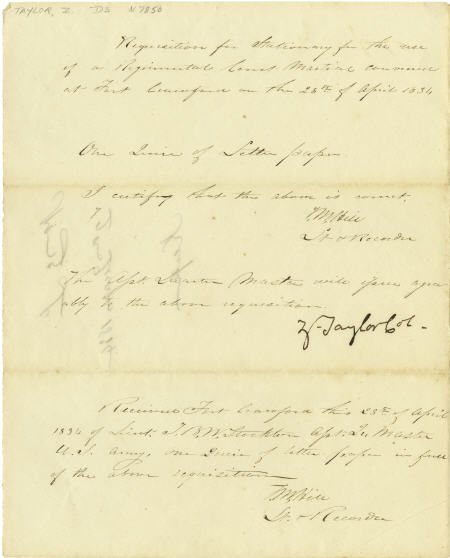 TAYLOR, Z. DS N7850
Requisition for Stationary for the use
of a Regimental Court Martial convened
at Fort Crawford on the 28th of April 1834
One Quire of Letter paper
I certify that the above is correct.
Hill
Lt. & Recorder
The Asst. Quarter Master will issue agree-
ably to the above requisition.
Z. Taylor Col.
Received Fort Crawford this 28th of April
1834 of Lieut. T. B. W. Stockton Asst. Qr Master
U.S. Army, one Quire of letter paper in full
of the above requisition
Hill
Lt. & Recorder